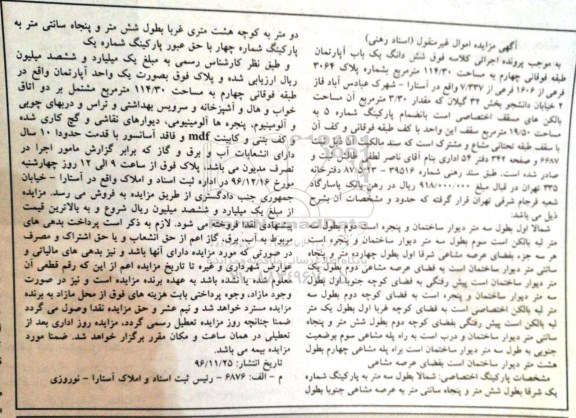 آگهی مزایده اموال غیرمنقول (اسناد رهنی)
به موجب پرونده اجرائی کلاسه فوق شش دانگ یک باب آپارتمان
طبقه فوقانی چهارم به مساحت ۱۱۴/۳۰ مترمربع بشماره پلاک ۳۰۶۴
فرعی از ۱۶۰۶ فرعی از ۷/۳۳۷ واقع در آستارا - شهرک عباس آباد فاز
۲ خیابان دانشجو بخش ۳۲ گیلان که مقدار ۳/۳۰ مترمربع آن مساحت
بالکن های مسقف اختصاصی است بانضمام پارکینگ شماره ۵ به
مساحت ۱۹/۵۰ مترمربع سقف این واحد با کف طبقه فوقانی و کف آن
با سقف طبقه تحتانی مشاع و مشترک است که سند مالکیت آن
۶۶۸۷ و صفحه ۳۴۲ دفتر ۵۴ اداری بنام آقای ناصر لطفی ثبت و
صادر شده است. طبق سند رهنی شماره ۳۹۵۱۶ - ۸۷/۵/۳ دفترخانه
۳۳۵ تهران در قبال مبلغ ۹۱۸/۰۰۰/۰۰۰ ریال در رهن بانک پاسارگاد
شعبه فرجام شرقی تهران قرار گرفته که حدود و مشخصات آن بشرح
ذیل می باشد:
شمالا اول بطول سه متر دیوار ساختمان و پنجره است دوم بطول
متر لبه بالکن است سوم بطول سه متر دیوار ساختمان و پنجره است
هر سه جزء بفضای عرصه مشاعی شرقا اول بطول چهارده متر و پنجاه
سانتی متر دیوار ساختمان است به فضای عرصه مشاعی دوم بطول یک
متر دیوار ساختمان است پیش رفتگی به فضای کوچه جنوبا اول بطول
سه متر دیوار ساختمان و پنجره است به فضای کوچه دوم بطول سه
متر لبه بالکن اختصاصی است به فضای کوچه غربا اول بطول یک متر
لبه بالکن است پیش رفتگی بفضای کوچه دوم بطول شش متر و پنجاه
سانتی متر دیوار ساختمان و درب است به راه پله مشاعی سوم بوضعیت
جنوبی به طول سه متر دیوار ساختمان است براه پله مشاعی چهارم بطول
هشت متر دیوار ساختمان است بفضای عرصه مشاعی
مشخصات پارکینگ اختصاصی: شمالا بطول سه متر به پارکینگ شماره
یک شرقا بطول شش متر و پنجاه سانتی متر به عرصه مشاعی جنوبا بطول
دو متر به کوچه هشت متری غربا بطول شش متر و پنجاه سانتی متر به
پارکینگ شماره چهار با حق عبور پارکینگ شماره یک
و طبق نظر کارشناس رسمی به مبلغ یک میلیارد و ششصد میلیون
ریال ارزیابی شده و پلاک فوق بصورت یک واحد آپارتمان واقع در
طبقه فوقانی چهارم به مساحت ۱۱۴/۳۰ مترمربع مشتمل بر دو اتاق
خواب و هال و آشپزخانه و سرویس بهداشتی و تراس و دربهای چوبی
و آلومینیوم، پنجره ها آلومینیومی، دیوارهای نقاشی و گچ کاری شده
و کف بتنی و کابینت mdf و فاقد آسانسور با قدمت حدودا ۱۰ سال
دارای انشعابات آب و برق و گاز که برابر گزارش مامور اجرا در
تصرف مدیون می باشد. پلاک فوق از ساعت ۹ الی ۱۲ روز چهارشنبه
مورخ ۹۶/۱۲/۱۶ در اداره ثبت اسناد و املاک واقع در آستارا - خیابان
جمهوری جنب دادگستری از طریق مزایده به فروش می رسد. مزایده
از مبلغ یک میلیارد و ششصد میلیون ریال شروع و به بالاترین قیمت
پیشنهادی نقدا فروخته می شود. لازم به ذکر است پرداخت بدهی های
مربوط به آب، برق، گاز اعم از حق انشعاب و یا حق اشتراک و مصرف
در صورتی که مورد مزایده دارای آنها باشد و نیز بدهی های مالیاتی و
عوارض شهرداری و غیره تا تاریخ مزایده اعم از این که رقم قطعی آن
معلوم شده یا نشده باشد به عهده برنده مزایده است و نیز در صورت
وجود مازاد، وجوه پرداختی بابت هزینه های فوق از محل مازاد به برنده
مزایده مسترد خواهد شد و نیم عشر و حق مزایده نقدا وصول می گردد
ضمنا چنانچه روز مزایده تعطیل رسمی گردد، مزایده روز اداری بعد از
تعطیلی در همان ساعت و مکان مقرر برگزار خواهد شد. ضمنا مورد
مزایده بیمه می باشد.
تاریخ انتشار: ۹۶/۱۱/۲۵
م - الف: ۶۸۷۶ - رئیس ثبت اسناد و املاک آستارا - نوروزی